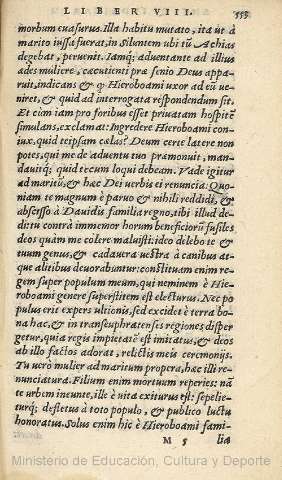 LIBER VIII. 555
morbum euasurus. Illa habitu mutato, ita ut à
marito iussa fuerat, in Siluntem ubi tū Achias
degebat, peruenit. Iamq; aduentante ad illius
ædes muliere, cæcutienti præ senio Deus appa-
ruit, indicans & ꝙ Hieroboami uxor ad eū ue-
niret, & quid ad interrogata respondendum sit.
Et cùm iam pro foribus esset priuatam hospitē
simulans, exclamat: Ingredere Hieroboami con-
iux. quid teipsam cælas? Deum certe latere non
potes, qui me de aduentu tuo præmonuit, man-
dauitq; quid tecum loqui debeam. Vade igitur
ad maritū, & hæc Dei uerbis ei renuncia: Quo-
niam te magnum è paruo & nihili reddidi, &
abscisso à Dauidis familia regno, tibi illud de-
di: tu contrà immemor horum beneficiorū fusiles
deos quàm me colere maluisti: ideo delebo te &
tuum genus, & cadauera uestra à canibus at-
que alitibus deuorabuntur: constituam enim re-
gem super populum meum, qui neminem è Hie-
roboami genere superstitem est electurus. Nec po
pulus erit expers ultionis, sed excidet è terra bo-
na hac, & in transeuphratenses regiones disper
getur, quia regis impietatē est imitatus, & deos
ab illo factos adorat, relictis meis ceremonijs.
Tu uerò mulier ad maritum propera, hæc illi re-
nunciatura. Filium enim mortuum reperies: nā
te urbem ineunte, ille è uita exiturus est: sepelie-
turq; defletus à toto populo, & publico luctu
honoratus. Solus enim hic è Hieroboami fami-
M 5 lia
Ministerio de Educación, Cultura y Deporte